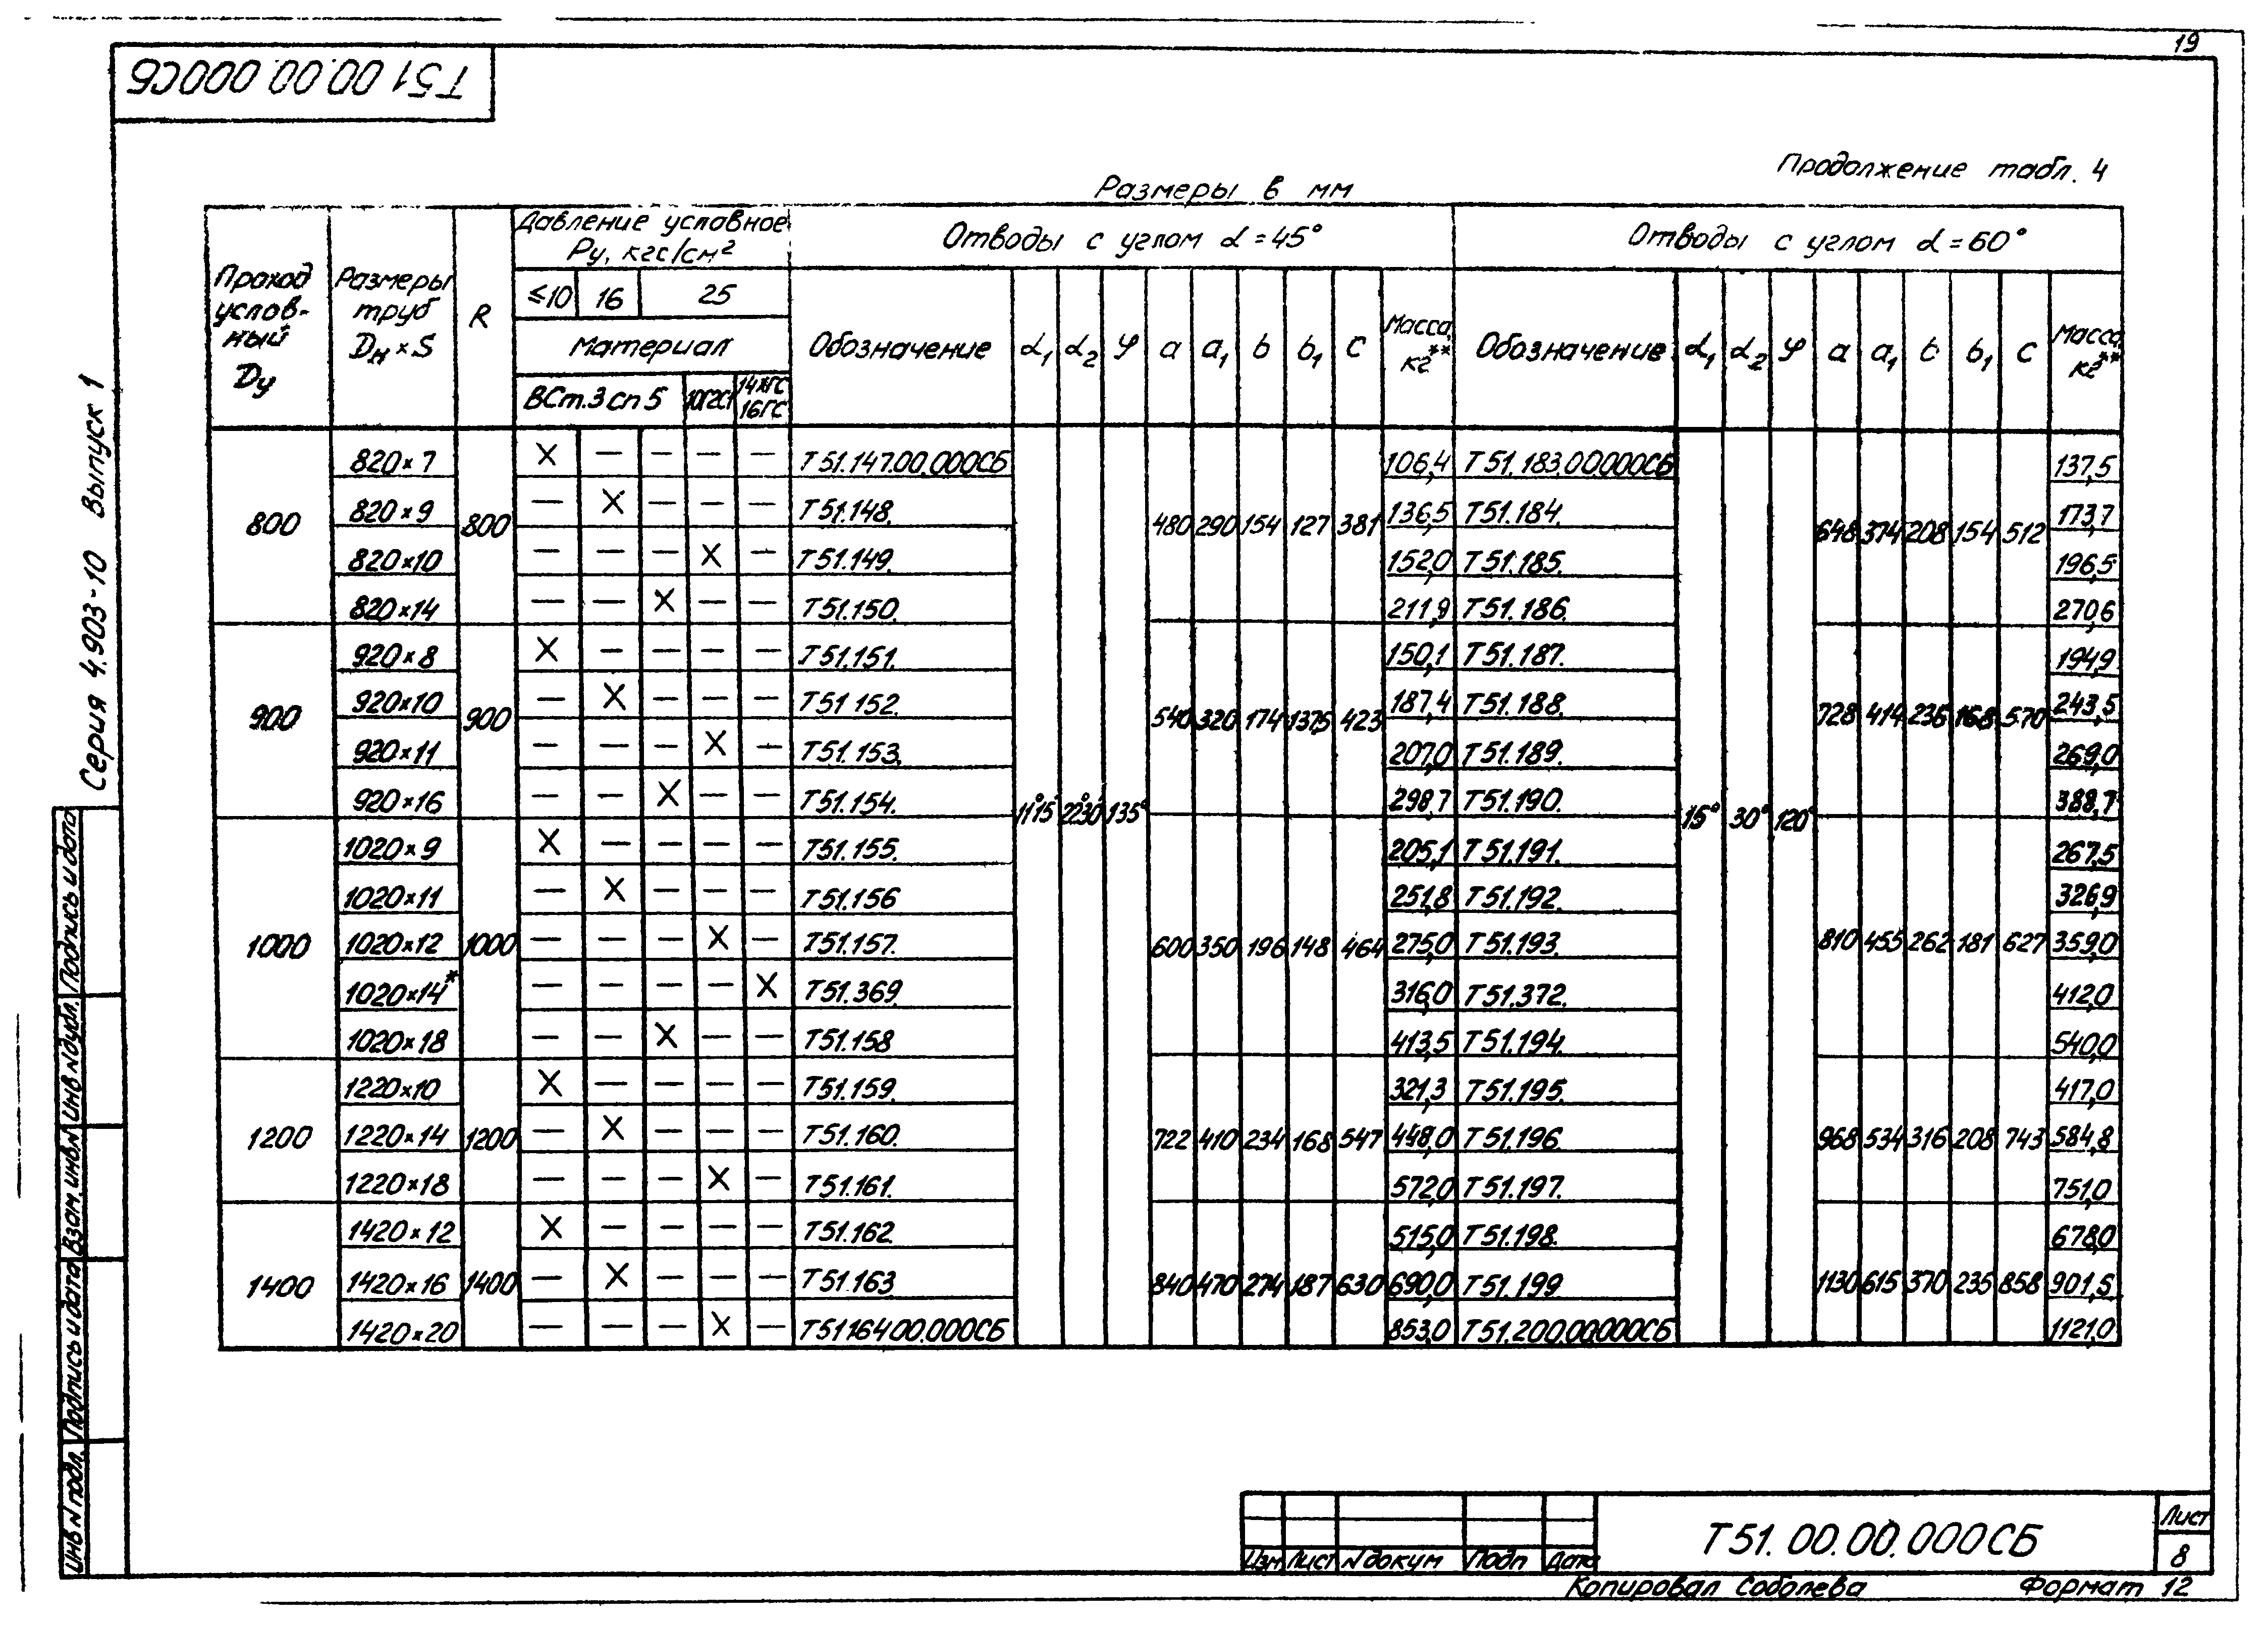 19
Т51 00.00.000СБ
Продолжение табл. 4
Размеры в мм
Проход условный Dу
Размеры труб Dн × S
R
Давление условное Ру, кгс/см²
≤10 16 25
Материал
ВСт.3сп5 10Г2С1 14ХГС 16ГС
Отводы с углом α=45°
Обозначение α₁ α₂ φ a a₁ b b₁ c Масса, кг**
Отводы с углом α=60°
Обозначение α₁ α₂ φ a a₁ b b₁ c Масса, кг**
11°15' 22°30' 135°
15° 30° 120°
800 800 480 290 154 127 381 648 374 208 154 512
820×7 X — — — — Т51.147.00.000СБ 106,4 Т51.183.00.000СБ 137,5
820×9 — X — — — Т51.148. 136,5 Т51.184. 173,7
820×10 — — — X — Т51.149. 152,0 Т51.185. 196,5
820×14 — — X — — Т51.150. 211,9 Т51.186. 270,6
900 900 540 320 174 137,5 423 728 414 236 168 570
920×8 X — — — — Т51.151. 150,1 Т51.187. 194,9
920×10 — X — — — Т51 152. 187,4 Т51.188. 243,5
920×11 — — — X — Т51.153. 207,0 Т51.189. 269,0
920×16 — — X — — Т51.154. 298,7 Т51.190. 388,7
1000 1000 600 350 196 148 464 810 455 262 181 627
1020×9 X — — — — Т51.155. 205,1 Т51.191. 267,5
1020×11 — X — — — Т51.156 251,8 Т51.192. 326,9
1020×12 — — — X — Т51.157. 275,0 Т51.193. 359,0
1020×14* — — — — X Т51.369. 316,0 Т51.372. 412,0
1020×18 — — X — — Т51.158 413,5 Т51.194. 540,0
1200 1200 722 410 234 168 547 968 534 316 208 743
1220×10 X — — — — Т51.159. 321,3 Т51.195. 417,0
1220×14 — X — — — Т51.160. 448,0 Т51.196. 584,8
1220×18 — — — X — Т51.161. 572,0 Т51.197. 751,0
1400 1400 840 470 274 187 630 1130 615 370 235 858
1420×12 X — — — — Т51.162. 515,0 Т51.198. 678,0
1420×16 — X — — — Т51.163 690,0 Т51.199 901,5
1420×20 — — — X — Т51.164.00.000СБ 853,0 Т51.200.00.000СБ 1121,0
Серия 4.903-10 Выпуск 1
Инв N подл. Подпись и дата Взам. инв.N Инв N дубл. Подпись и дата
Изм Лист N докум Подп Дата
Т51.00.00.000СБ
Лист
8
Копировал Соболева Формат 12